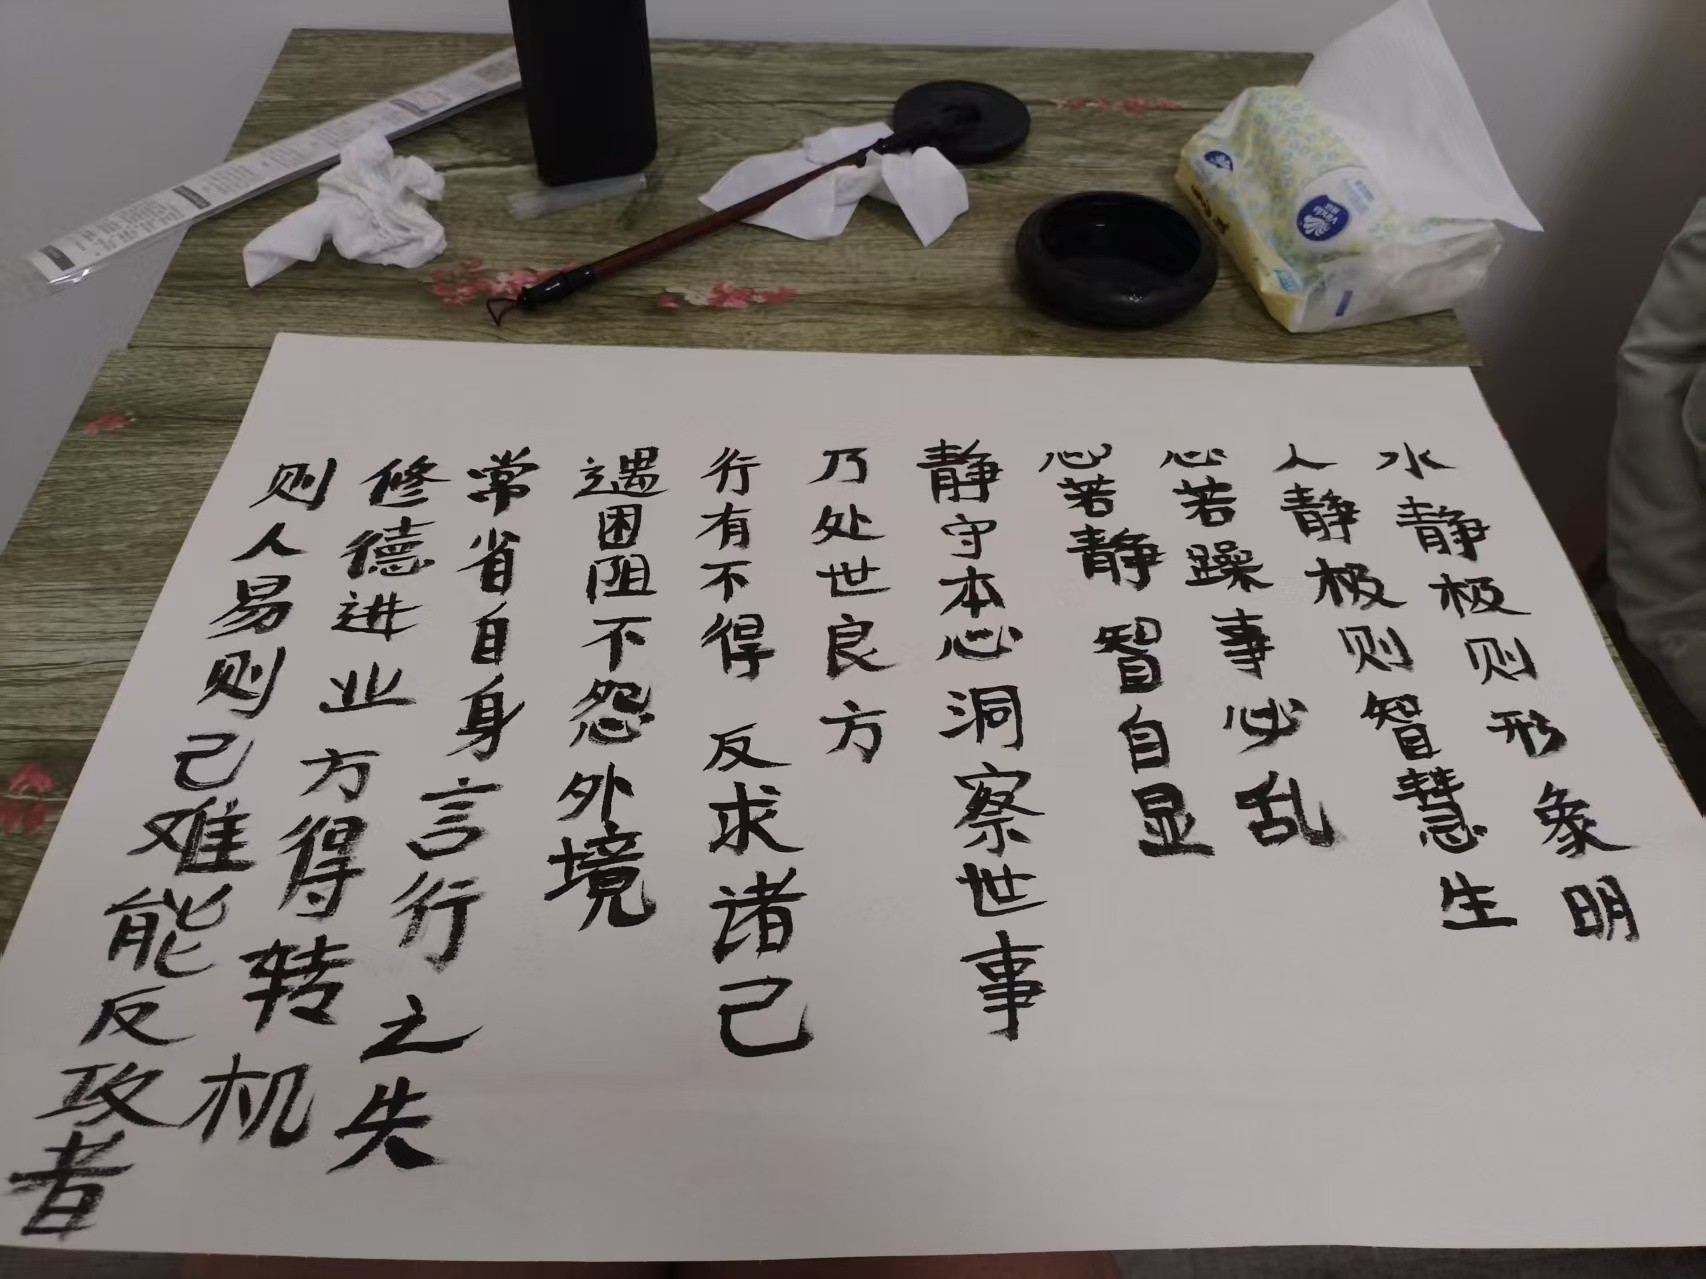 水静极则形象明
人静极则智慧生
心若躁事必乱
心若静智自显
静守本心洞察世事
乃处世良方
行有不得反求诸己
遇困阻不怨外境
常省自身言行之失
修德进业方得转机
则人易则己难能反攻者
Vinda